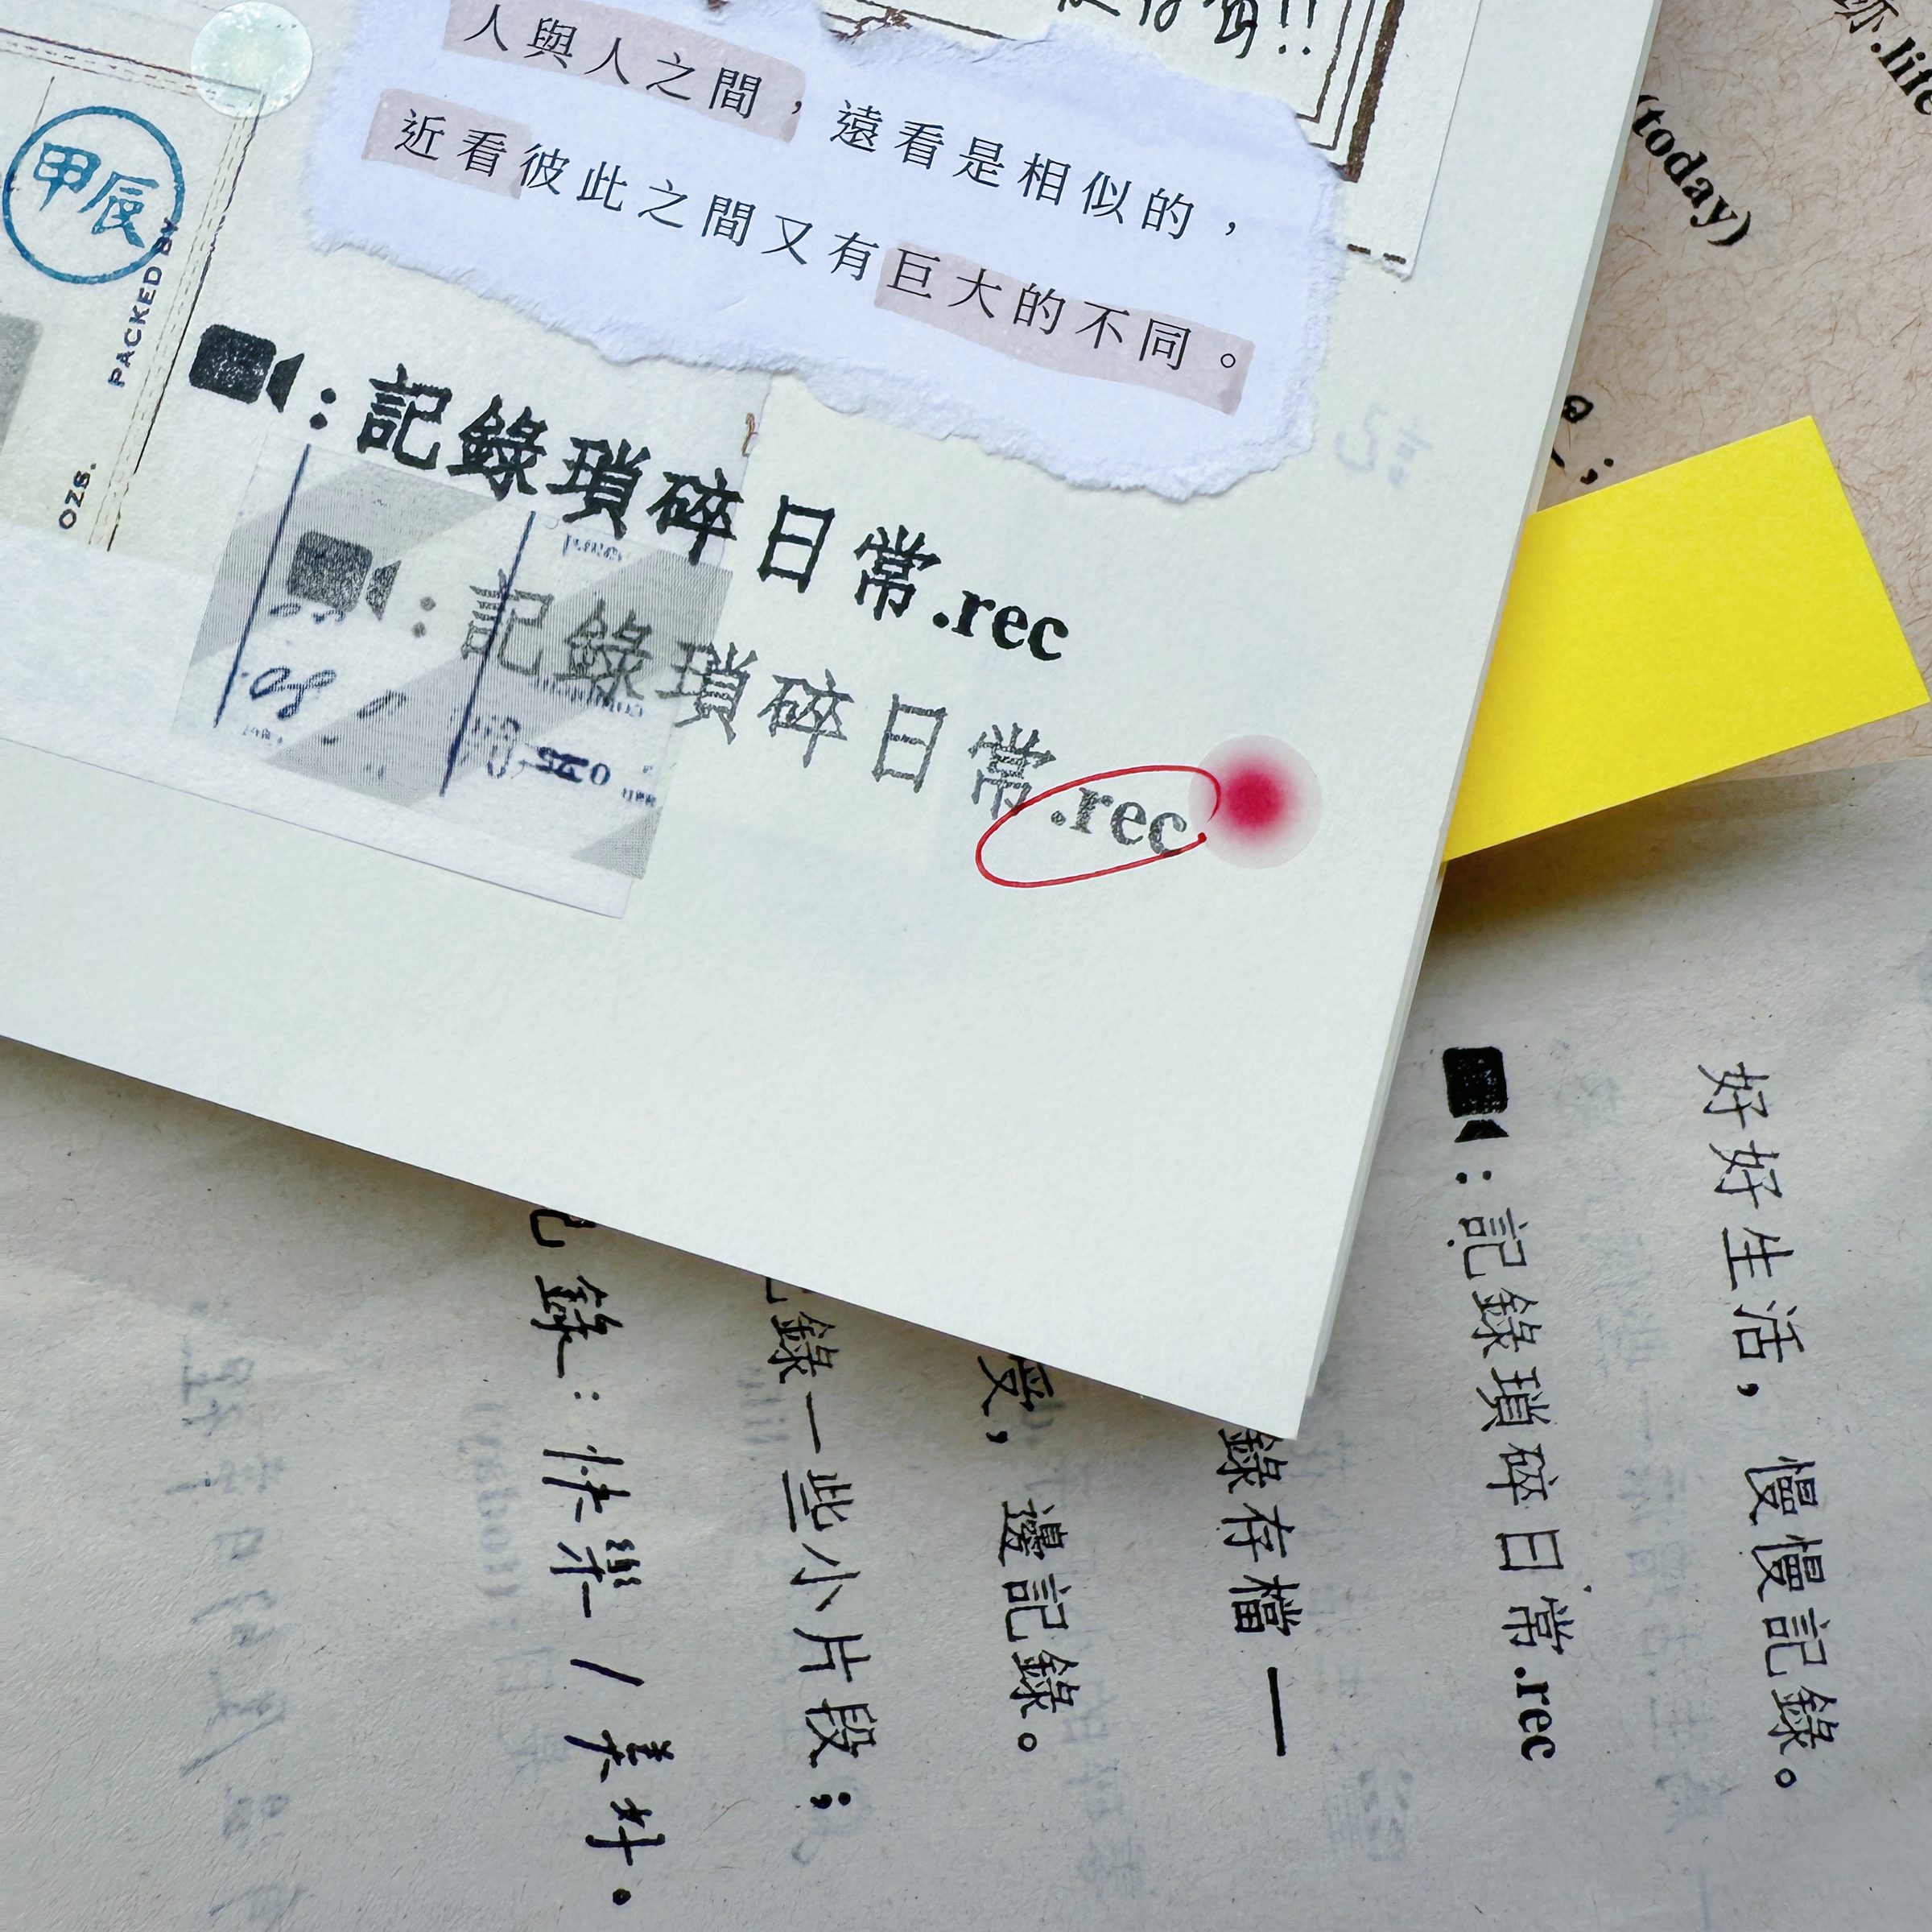 人與人之間，遠看是相似的，
近看彼此之間又有巨大的不同。
甲辰
PACKED BY
OZS.
：記錄瑣碎日常.rec
：記錄瑣碎日常.rec
.life
(today)
好好生活，慢慢記錄。
：記錄瑣碎日常.rec
錄存檔 —
受，邊記錄。
記錄一些小片段；
記錄：快樂/美好。